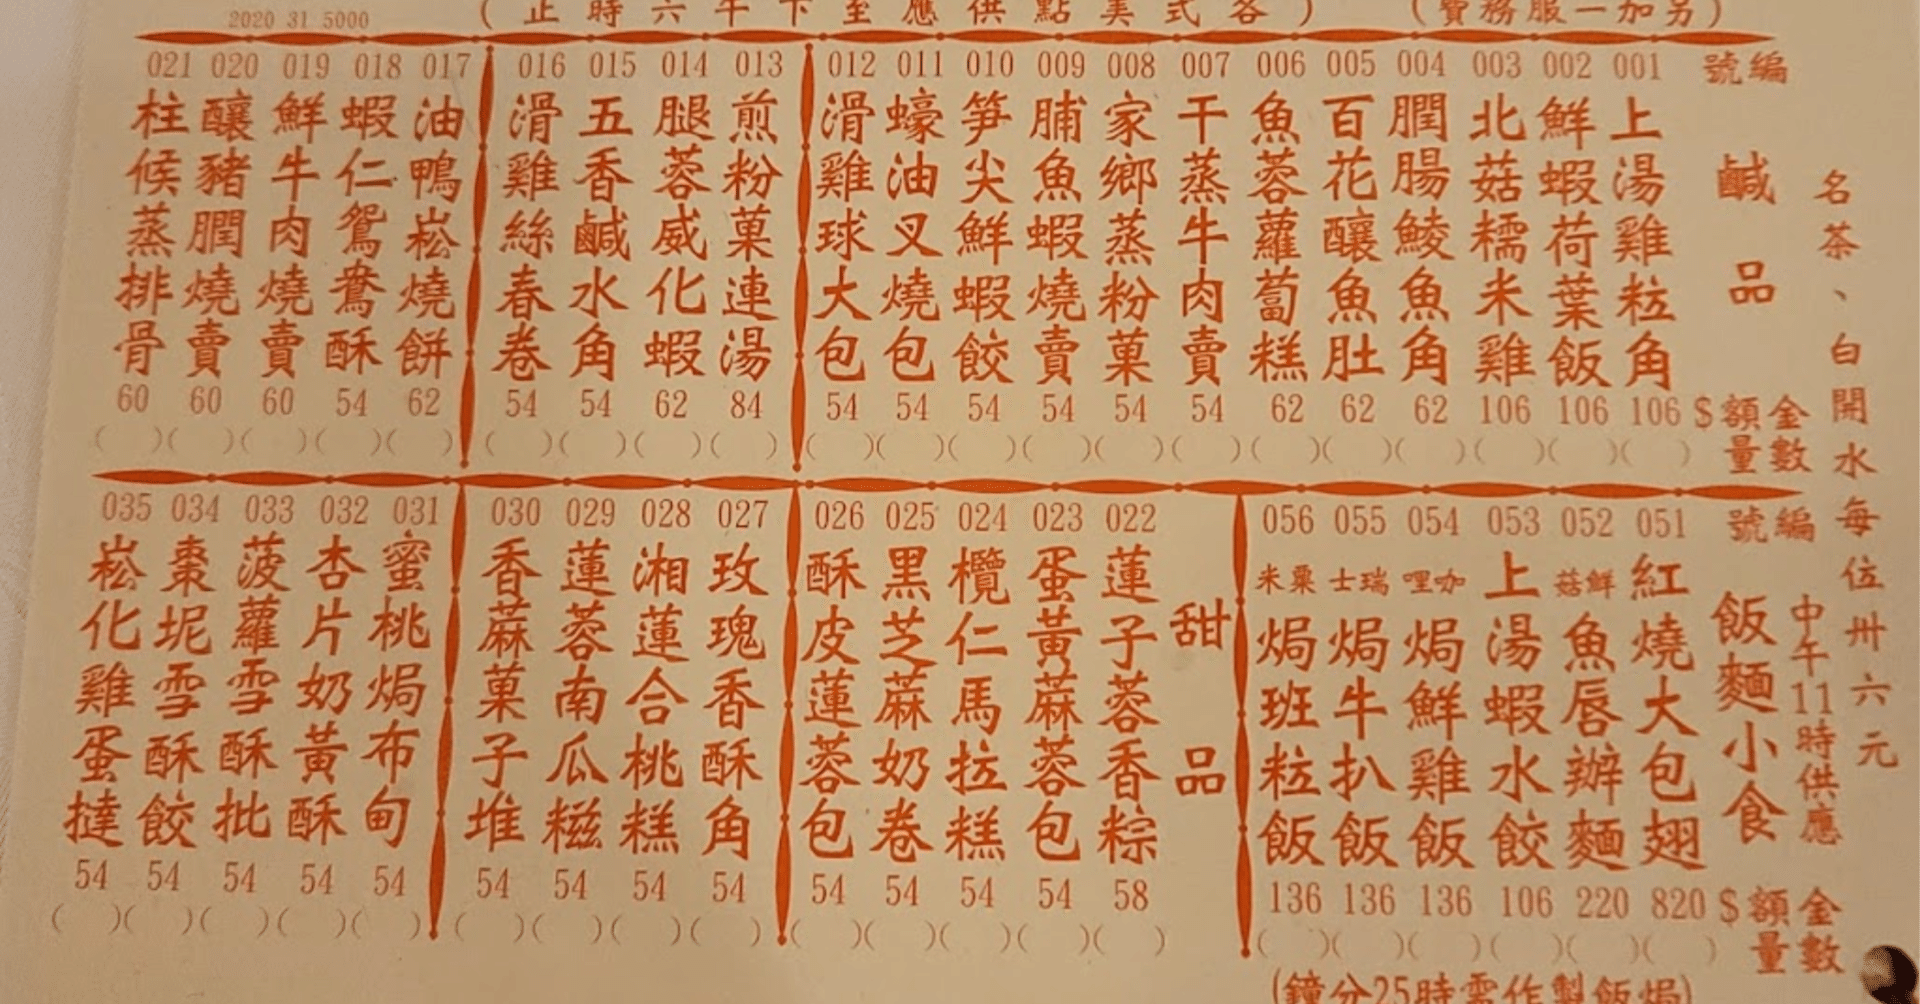 (另加一服務費)
(各式美點供應至下午六時正)
2020 31 5000
名茶、白開水每位卅六元
編號 鹹品 金額$ 數量
001 上湯雞粒角 106 ( )
002 鮮蝦荷葉飯 106 ( )
003 北菇糯米雞 106 ( )
004 膶腸鯪魚角 62 ( )
005 百花釀魚肚 62 ( )
006 魚蓉蘿蔔糕 62 ( )
007 干蒸牛肉賣 54 ( )
008 家鄉蒸粉菓 54 ( )
009 脯魚蝦燒賣 54 ( )
010 笋尖鮮蝦餃 54 ( )
011 蠔油叉燒包 54 ( )
012 滑雞球大包 54 ( )
013 煎粉菓連湯 84 ( )
014 腿蓉威化蝦 62 ( )
015 五香鹹水角 54 ( )
016 滑雞絲春卷 54 ( )
017 油鴨崧燒餅 62 ( )
018 蝦仁鴛鴦酥 54 ( )
019 鮮牛肉燒賣 60 ( )
020 釀豬膶燒賣 60 ( )
021 柱候蒸排骨 60 ( )
中午11時供應
編號 飯麵小食 金額$ 數量
051 紅燒大包翅 820 ( )
052 鮮菇魚唇辦麵 220 ( )
053 上湯蝦水餃 106 ( )
054 咖喱焗鮮雞飯 136 ( )
055 瑞士焗牛扒飯 136 ( )
056 粟米焗班粒飯 136 ( )
甜品
022 蓮子蓉香粽 58 ( )
023 蛋黃蔴蓉包 54 ( )
024 欖仁馬拉糕 54 ( )
025 黑芝蔴奶卷 54 ( )
026 酥皮蓮蓉包 54 ( )
027 玫瑰香酥角 54 ( )
028 湘蓮合桃糕 54 ( )
029 蓮蓉南瓜糍 54 ( )
030 香蔴菓子堆 54 ( )
031 蜜桃焗布甸 54 ( )
032 杏片奶黃酥 54 ( )
033 菠蘿雪酥批 54 ( )
034 棗坭雪酥餃 54 ( )
035 崧化雞蛋撻 54 ( )
(焗飯製作需時25分鐘)